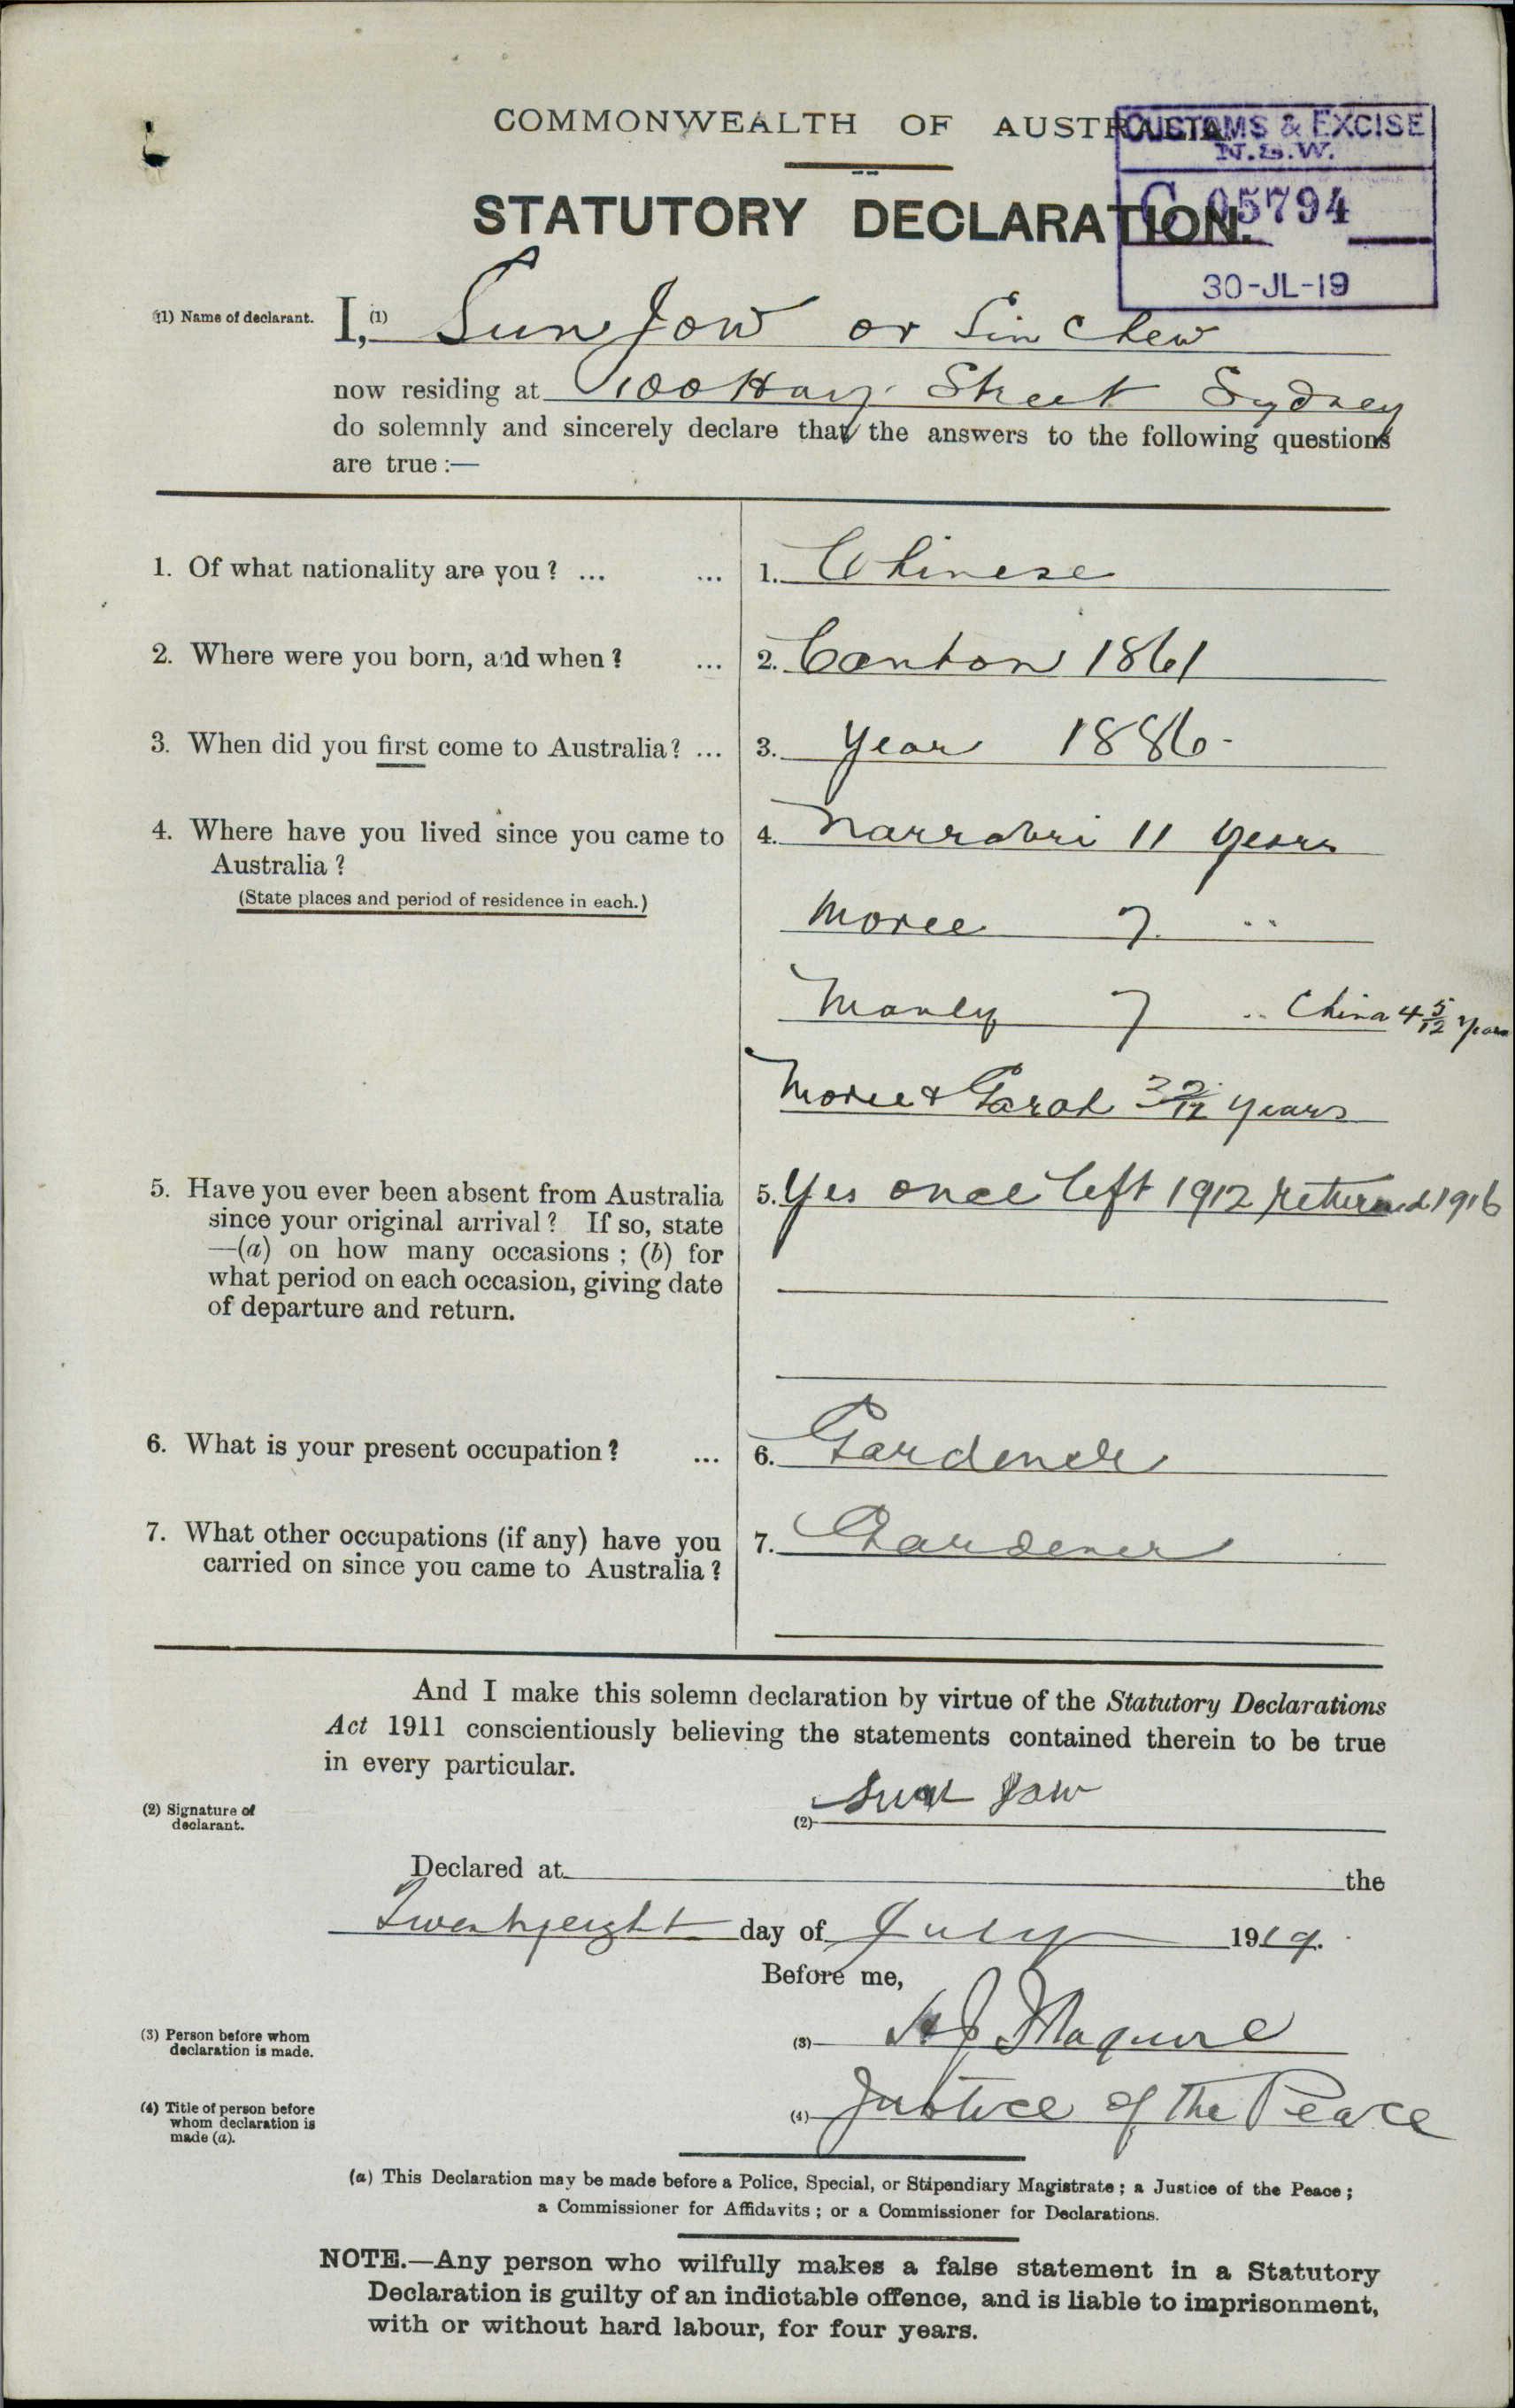 COMMONWEALTH OF AUSTRALIA
CUSTOMS & EXCISE
N.S.W.
STATUTORY DECLARATION.
C 05794
30-JL-19
(1) Name of declarant.
I, (1) Sun Jow or Sin Chew
now residing at 100 Hay Street Sydney
do solemnly and sincerely declare that the answers to the following questions
are true :—
1. Of what nationality are you ? ... ...
1. Chinese
2. Where were you born, and when ? ...
2. Canton 1861
3. When did you first come to Australia ? ...
3. Year 1886-
4. Where have you lived since you came to
Australia ?
(State places and period of residence in each.)
4. Narrabri 11 years
Moree 7. "
Manly 7 " China 4 5/12 years
Moree & Garah 3 2/12 years
5. Have you ever been absent from Australia
since your original arrival ? If so, state
—(a) on how many occasions ; (b) for
what period on each occasion, giving date
of departure and return.
5. Yes once left 1912 returned 1916
6. What is your present occupation ? ...
6. Gardener
7. What other occupations (if any) have you
carried on since you came to Australia ?
7. Gardener
And I make this solemn declaration by virtue of the Statutory Declarations
Act 1911 conscientiously believing the statements contained therein to be true
in every particular.
(2) Signature of
declarant.
(2) Sun Jow
Declared at the
Twentyeight day of July 1919.
Before me,
(3) Person before whom
declaration is made.
(3) Maguire
(4) Title of person before
whom declaration is
made (a).
(4) Justice of the Peace
(a) This Declaration may be made before a Police, Special, or Stipendiary Magistrate ; a Justice of the Peace ;
a Commissioner for Affidavits ; or a Commissioner for Declarations.
NOTE.—Any person who wilfully makes a false statement in a Statutory
Declaration is guilty of an indictable offence, and is liable to imprisonment,
with or without hard labour, for four years.